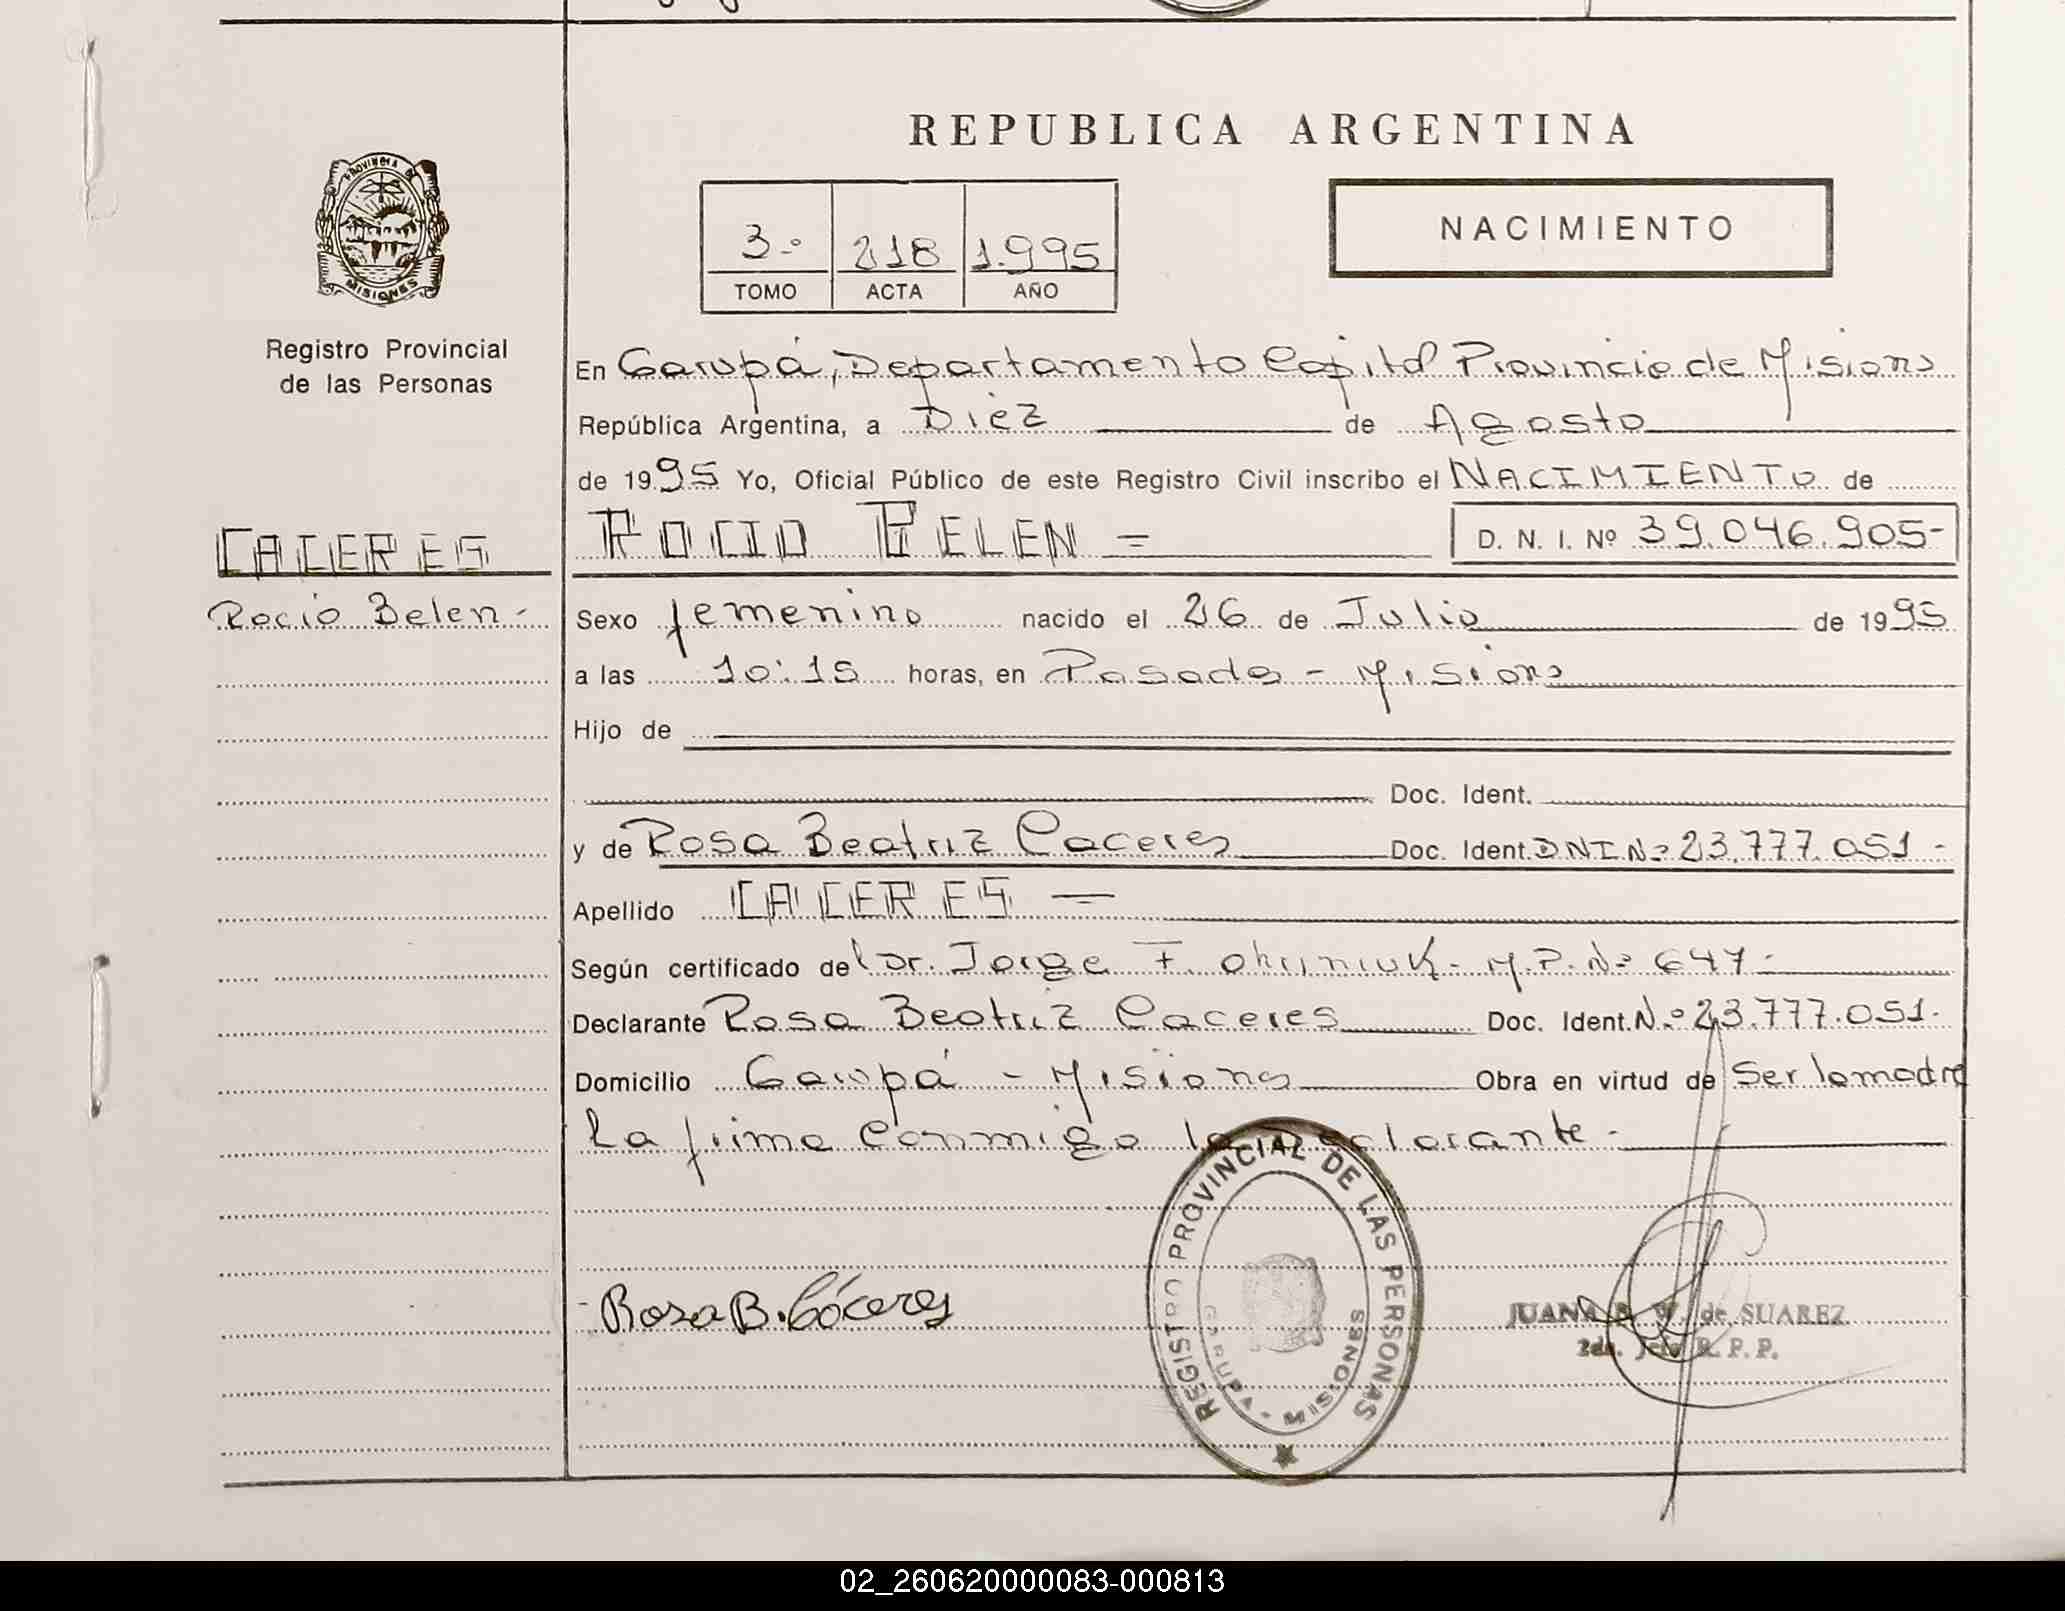 REPUBLICA ARGENTINA
PROVINCIA DE
MISIONES
Registro Provincial
de las Personas
3.º 218 1.995
TOMO ACTA AÑO
NACIMIENTO
En Garupá, Departamento Capital Provincia de Misiones
República Argentina, a Diez de Agosto
de 1995 Yo, Oficial Público de este Registro Civil inscribo el NACIMIENTO de
CACERES
ROCIO BELEN =
D. N. I. Nº 39.046.905-
Rocio Belen -
Sexo femenino nacido el 26 de Julio de 1995
a las 10:15 horas, en Posadas - Misiones
Hijo de
Doc. Ident.
y de Rosa Beatriz Caceres Doc. Ident. DNI Nº 23.777.051 -
Apellido CACERES =
Según certificado del Dr. Jorge F. M.P.Nº 647 -
Declarante Rosa Beatriz Caceres Doc. Ident. N.º 23.777.051.
Domicilio Garupá - Misiones Obra en virtud de Ser la madre
La firma conmigo la declarante -
REGISTRO PROVINCIAL DE LAS PERSONAS
GARUPA - MISIONES
- Rosa B. Cáceres
JUANA B. W. de SUAREZ
2da. Jefe R. P. P.
02_260620000083-000813